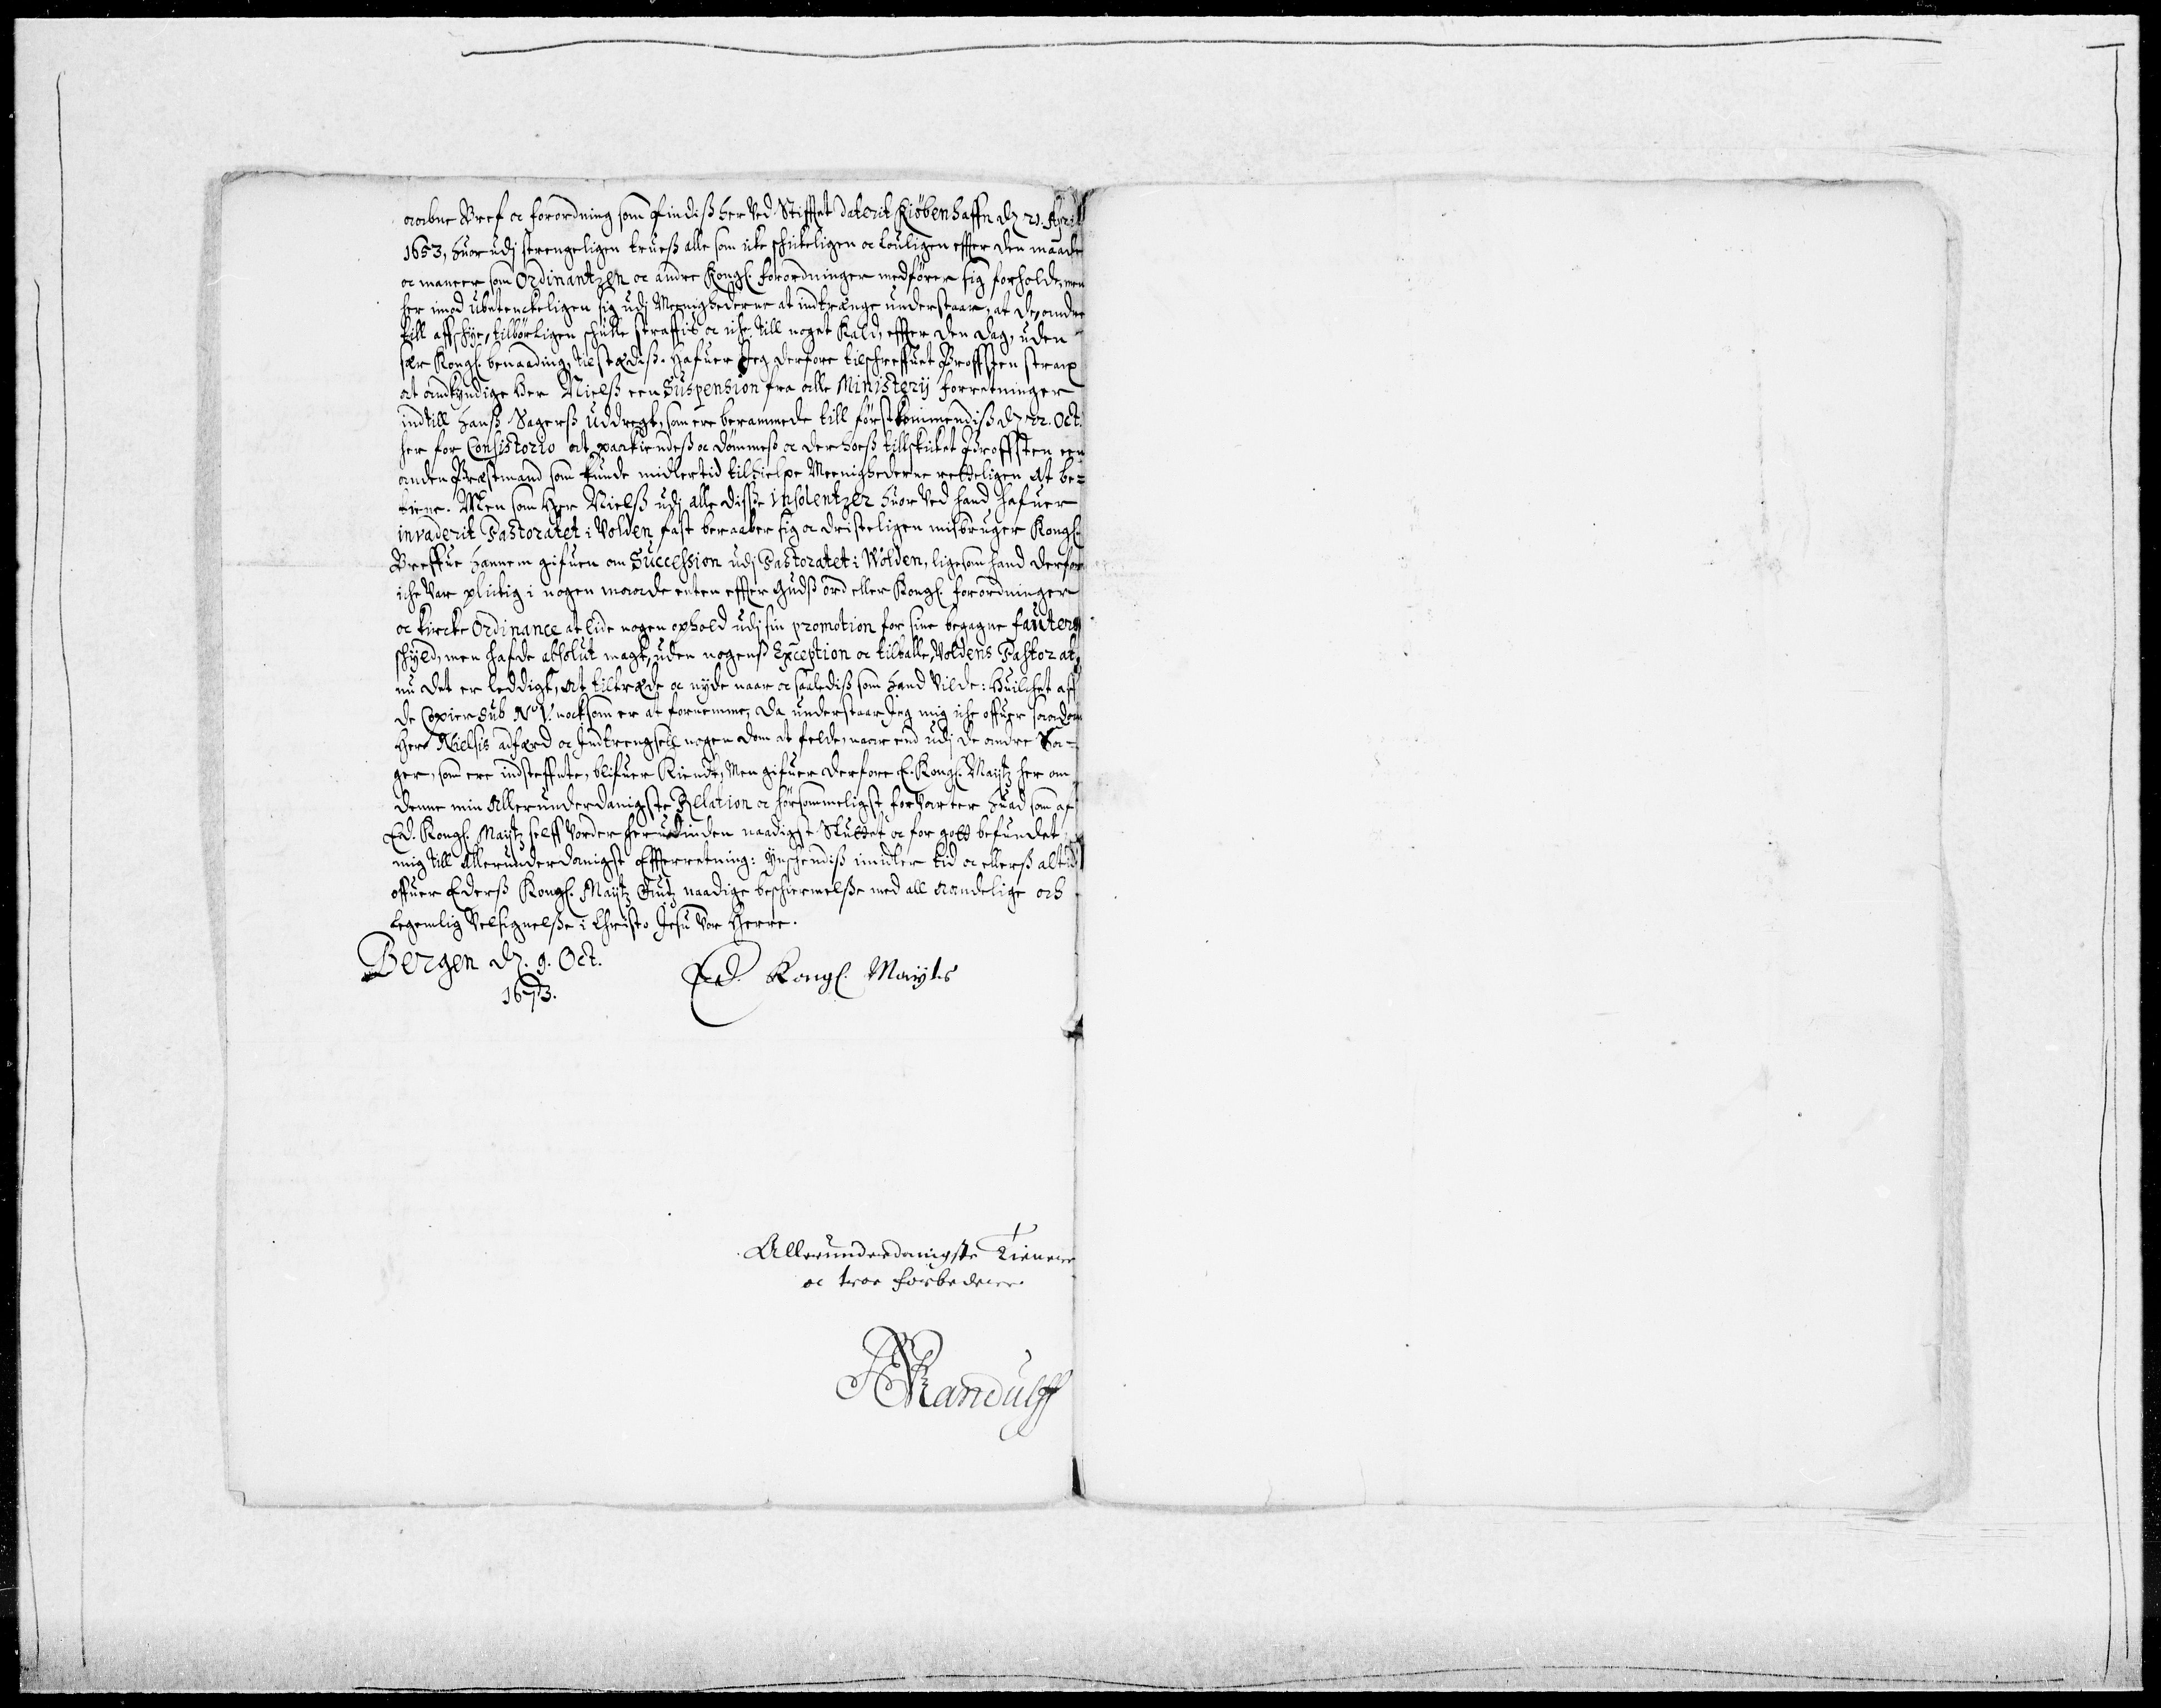 aabne Bref oc forordning som findiß her ved Stifftet daterit Kiöbenhaffn dz 21. April
1653, huor udj strengeligen trueß alle som icke schickeligen oc louligen effter den maade
oc maneer som Ordinantzen oc andre Kongl. forordninger medfører sig forholde, men
her imod ubetenckeligen sig udj Menighederne at indtrænge understaar, at de, andre
till affschye, tilbörligen schulle straffis oc iche till noget Kald, effter den dag, uden
sær Kongl. benaading, tilstædiß. Hafuer Jeg derfore tilschreffuet Proffsten strax
at andkyndige Her Nielß een Suspension fra alle Ministerij forretninger
indtill hanß Sagerß Uddregt, som ere berammede till förstkommendiß dz 22. Oct.
her for Consistorio at paakiendeß oc dömmeß oc der hoeß tillskicket Proffsten een
anden Præstemand som kunde midlertid tilhielpe Meenighederne retteligen at be-
tiene. Men som Her Nielß udj alle diße insolentzer huor ved hand hafuer
invaderit Pastoratet i Volden fast beraaber sig oc dristeligen misbruger Kongl.
Breffue hannem gifuen om Succession udj Pastoratet i Wolden, ligesom hand derfor
iche var plictig i nogen maade enten effter Gudß ord eller Kongl. forordninger
oc kircke Ordinance at lide nogen ophold udj sin promotion for sine begagne fauters
schyld, men hafde absolut magt, uden nogenß Exception oc tiltalle, Voldens Pastorat,
nu det er leddigt, at tiltræde oc nyde naar oc saalediß som hand vilde: Huilchet aff
de Copier sub No V. nocksom er at fornemme, da understaar Jeg mig iche offuer saadan
Her Nielsis adfærd oc Indtrengsell nogen dom at felde, naar end udj de andre Sa-
ger, som ere indsteffnte, blifuer Kiendt, Men gifuer derfore E. Kongl. Maytz her om
denne min Allerunderdanigste Relation oc hörsommeligst forvarter huad som af
Ed. Kongl. Maytz self vorder herudinden naadigst Sluttet oc for gott befundet
mig till Allerunderdanigst Effterretning: Ynschendiß imidler tid oc ellerß altid
offuer Ederß Kongl. Maytz Gudz naadige beschiermelße med all aandelige och
legemlig Velsignelße i Christo Jesu vor Herre.
Bergen dz. 9. Oct.
1673.
Ed. Kongl. Mayts
Allerunderdanigste Tienere
oc troe forbedere
Randulff